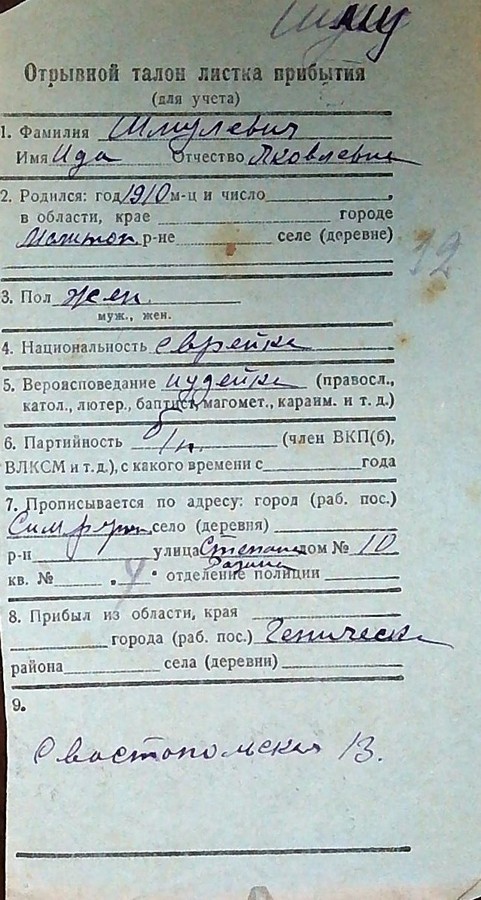 Шму
Отрывной талон листка прибытия
(для учета)
1. Фамилия Шмулевич
Имя Ида Отчество Яковлевна
2. Родился: год 1910 м-ц и число
в области, крае городе
Мелитоп. р-не селе (деревне)
12
3. Пол жен.
муж., жен.
4. Национальность еврейка
5. Вероисповедание иудейка (правосл.,
катол., лютер., баптист, магомет., караим. и т. д.)
6. Партийность б/п. (член ВКП(б),
ВЛКСМ и т.д.), с какого времени с года
7. Прописывается по адресу: город (раб. пос.)
село (деревня)
р-н улица Степана Разина дом № 10
кв. № отделение полиции
8. Прибыл из области, края
города (раб. пос.) Геническа
района села (деревни)
9.
Севастопольская 13.